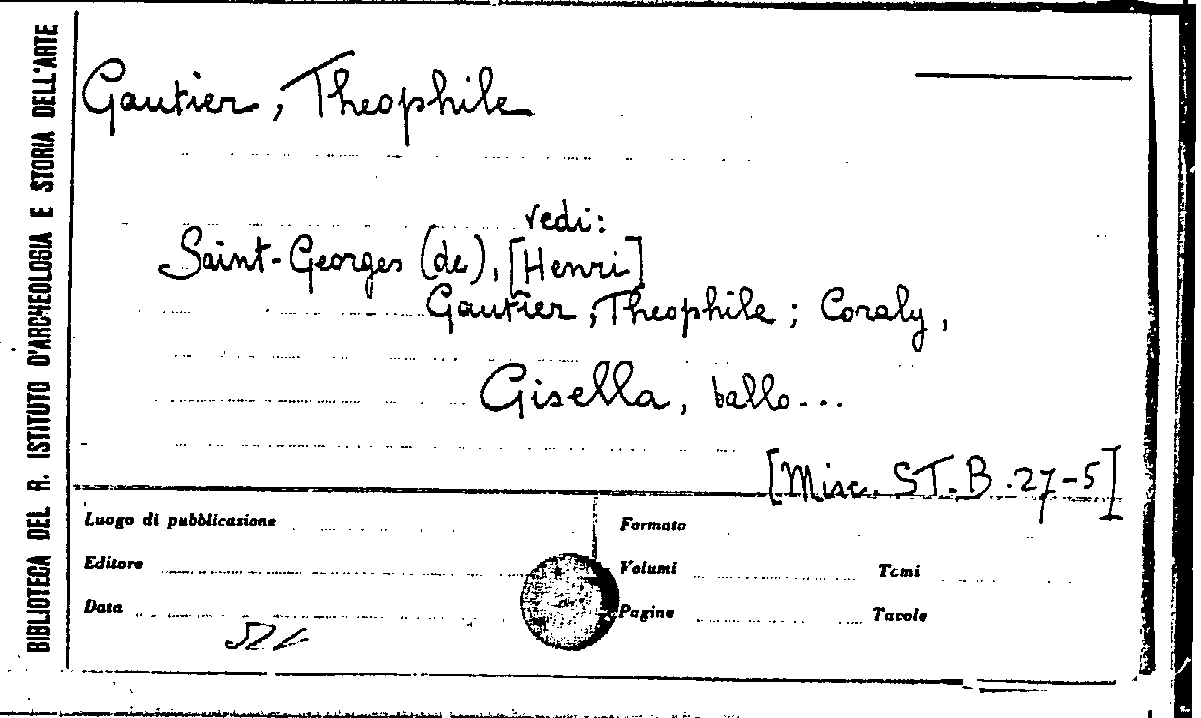 BIBLIOTECA DEL R. ISTITUTO D'ARCHEOLOGIA E STORIA DELL'ARTE
Gautier, Theophile
vedi:
Saint-Georges (de), [Henri]
Gautier, Theophile; Coraly,
Gisella, ballo...
[Misc. ST. B. 27-5]
Luogo di pubblicazione
Formato
Editore
Volumi
Tomi
Data
Pagine
Tavole